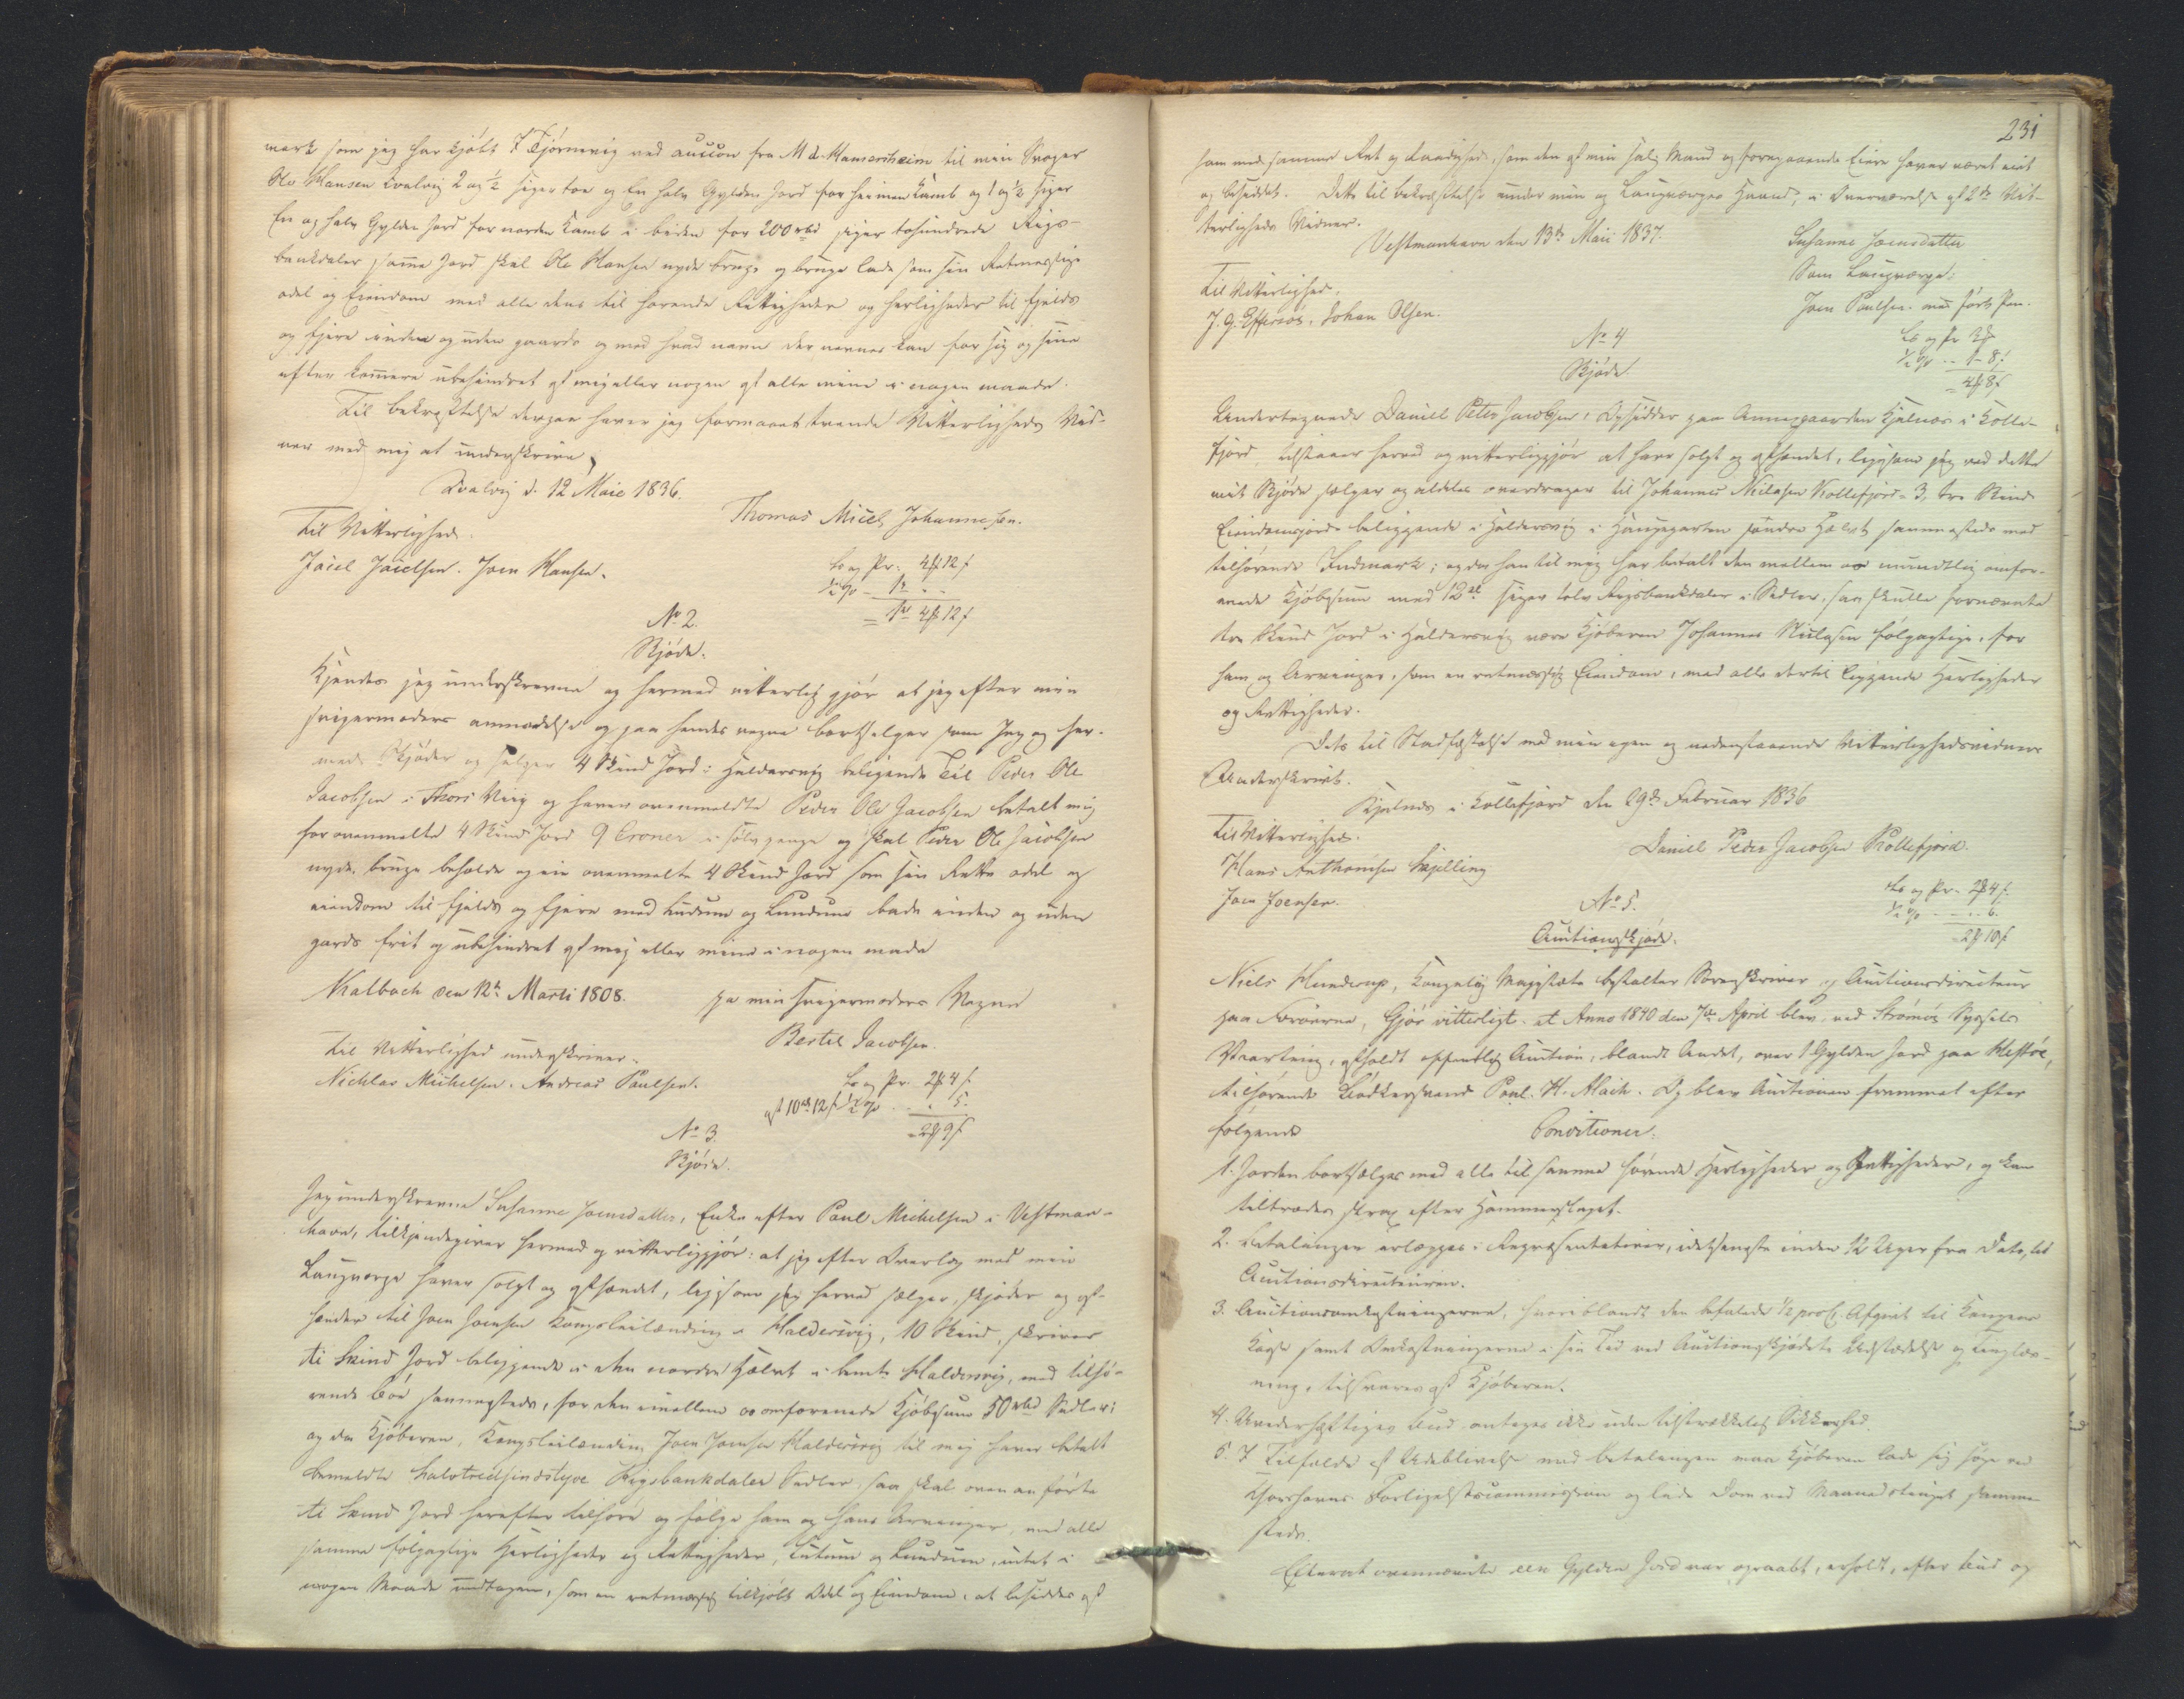 mark som jeg har kjøbt i Tjørnevig ved auction fra M d. Hamersheim til min Svoger
Ole Hansen Qvalvig 2 og ½ siger toe og En halv Gylden Jord for heimen Kamb og 1 og ½ siger
En og halv Gylden Jord for norden Kamb i beiden for 200 rbd siger tohundrede Rigs-
bankdaler samme Jord skal Ole Hansen nyde bruge og bruge lade som sin Retmessige
odel og Eiendom med alle dens til hørende Rettigheder og herligheder til fjelds
og fjere inden og uden gaards og med hvad navn der nevnes kan for sig og sine
efter kommere ubehindret af mig eller nogen af alle mine i nogen maade.
Til bekræftelse derpaa haver jeg formaaet tvende Vitterligheds Vid-
ner med mig at underskrive
Qvalvig d. 12 Maie 1836.
Thomas Micel Johannesen.
Til Vitterlighed.
Jacel Jacelsen. Joen Hansen.
Ls og Pr. 4 12 f
½ % - 1 - -
= 1 4 12 f
No 2.
Skjøde.
Kjendes jeg underskrevne og hermed vitterlig gjør at jeg efter min
svigermoders anmodelse og paa hendes vegne bortselger som Jeg og her-
med Skjøder og selger 4 Skind Jord i Haldersvig beligende til Peder Ole
Jacobsen i Thors Vig og haver ovenmeldte Peder Ole Jacobsen betalt mig
for ovenmelte 4 Skind Jord 9 Croner i sølv penge og skal Peder Ole Jacobsen
nyde, bruge beholde og eie ovenmelte 4 Skind Jord som sin Rette odel og
eiendom til fjelds og fjere med Ludum og Lundum bade inden og uden
gards frit og ubehindret af mig eller mine i nogen made
Kalbach den 12te Marti 1808.
pa min svigermoders Vegne
Bertel Jacobsen.
Til Vitterlighed underskriver.
Nichlas Michelsen. Andreas Paulsen.
Ls og Pr. 2 4 f
af 10 rbd 12 f ½ % . . 5.
= 2 9 f
No 3.
Skjøde.
Jeg underskrevne Susanne Joensdatter, Enke efter Poul Michelsen i Vestman-
havn, tilkjendegiver hermed og vitterliggjør: at jeg efter Overlæg med min
Laugværge haver solgt og afhændet, ligesom jeg herved sælger, skjøder og af-
hænder til Joen Joensen Kongsleilænding i Haldersvig, 10 Skind, skriver
ti Skind Jord beliggende i den norden Hælvt i bemte Haldersvig, med tilhø-
rende Bøe sammesteds, for den imellem os omforenede Kjøbesum 50 rbd Sedler;
og da Kjøberen, Kongsleilænding Joen Joensen Haldersvig til mig haver betalt
bemeldte halvtredsindstyve Rigsbankdaler Sedler, saa skal oven an førte
ti Skind Jord herefter tilhøre og følge ham og hans Arvinger, med alle
samme følgagtige Herligheder og Rettigheder, Lutum og Lundum, intet i
nogen Maade undtagen, som en retmæssig tilkjøbt Odel og Eiendom, at besiddes af
231
ham med samme Ret og Raadighed, som den af min salig Mand og foregaaende Eiere haver været eiet
og besiddet. Dette til bekræftelse under min og Laugværges Haand, i Overværelse af 2de Vit-
terligheds Vidner.
Vestmanhavn den 13de Maii 1837.
Susanne Joensdatter
Som Laugværge:
Joen Poulsen med ført Pen.
Til Vitterlighed.
J. G. Effersøe. Johan Olsen.
Ls og Pr 3
½ % .. 1 - 8 f
= 4 8 f
No 4
Skjøde
Undertegnede Daniel Peter Jacobsen, Opsidder paa Annexgaarden Kjelnæs i Kolle-
fjord, tilstaaer herved og vitterliggjør at have solgt og afhændet, ligesom jeg ved dette
mit Skjøde sælger og aldeles overdrager til Johannes Nielasen Kollefjord 3, tre Skind
Eiendomsjord beliggende i Haldersvig i Haugegarten søndre Hælvt sammesteds med
tilhørende Indmark; og da han til mig har betalt den mellem os mundtlig omfor-
enede Kjøbesum med 12 rd siger tolv Rigsbankdaler i Sedler, saa skulle fornævnte
tre Skind Jord i Haldersvig være Kjøberen Johannes Nielasen følgagtige, for
ham og Arvinger, som en retmæssig Eiendom, med alle dertil liggende Herligheder
og Rettigheder.
Dets til Stadfæstelse med min egen og nedenstaaende Vitterlighedsvidners
Underskrivt.
Kjelnæs i Kollefjord den 29de Februar 1836
Daniel Peder Jacobsen Kollefjord.
Til Vitterlighed.
Hans Anthonisen Skjelling
Joen Joensen.
Ls og Pr. 2 4 f.
½ % - - .. 6.
= 2 10 f
No 5.
Auctionsskjøde.
Niels Hunderup, Kongelig Majestæts bestalter Sorenskriver og Auctionsdirecteur
paa Færøerne, Gjør vitterligt: at Anno 1840 den 7de April blev, ved Strømøe Syssels
Vaarting, afholdt offentlig Auction, blandt Andet, over 1 Gylden Jord paa Hestøe,
tilhørende Bødkersvend Poul. H. Mach. Og blev Auctionen fremmet efter
følgende
Conditioner:
1. Jorden bortsælges med alle til samme hørende Herligheder og Rettigheder, og kan
tiltrædes strax efter Hammerslaget.
2. Betalingen erlægges i Repræsentativer, idetseneste inden 12 Uger fra Dato, til
Auctionsdirecteuren.
3. Auctionsomkostningerne, hvoriblandt den befalede ½ proC. Afgivt til Kongens
Kasse samt Omkostningerne i sin Tid ved Auctionsskjødets Udstædelse og Tinglæs-
ning, tilsvares af Kjøberen.
4. Uvederhæftiges Bud antages ikke uden tilstrækkelig Sikkerhed.
5. I Tilfælde af Udeblivelse med Betalingen maa Kjøberen lade sig søge ved
Thorshavns Forligelsescommission og lide Dom ved Maanedstinget samme
steds.
Efterat ovennævnte een Gylden Jord var opraabt, erholdt, efter Bud og